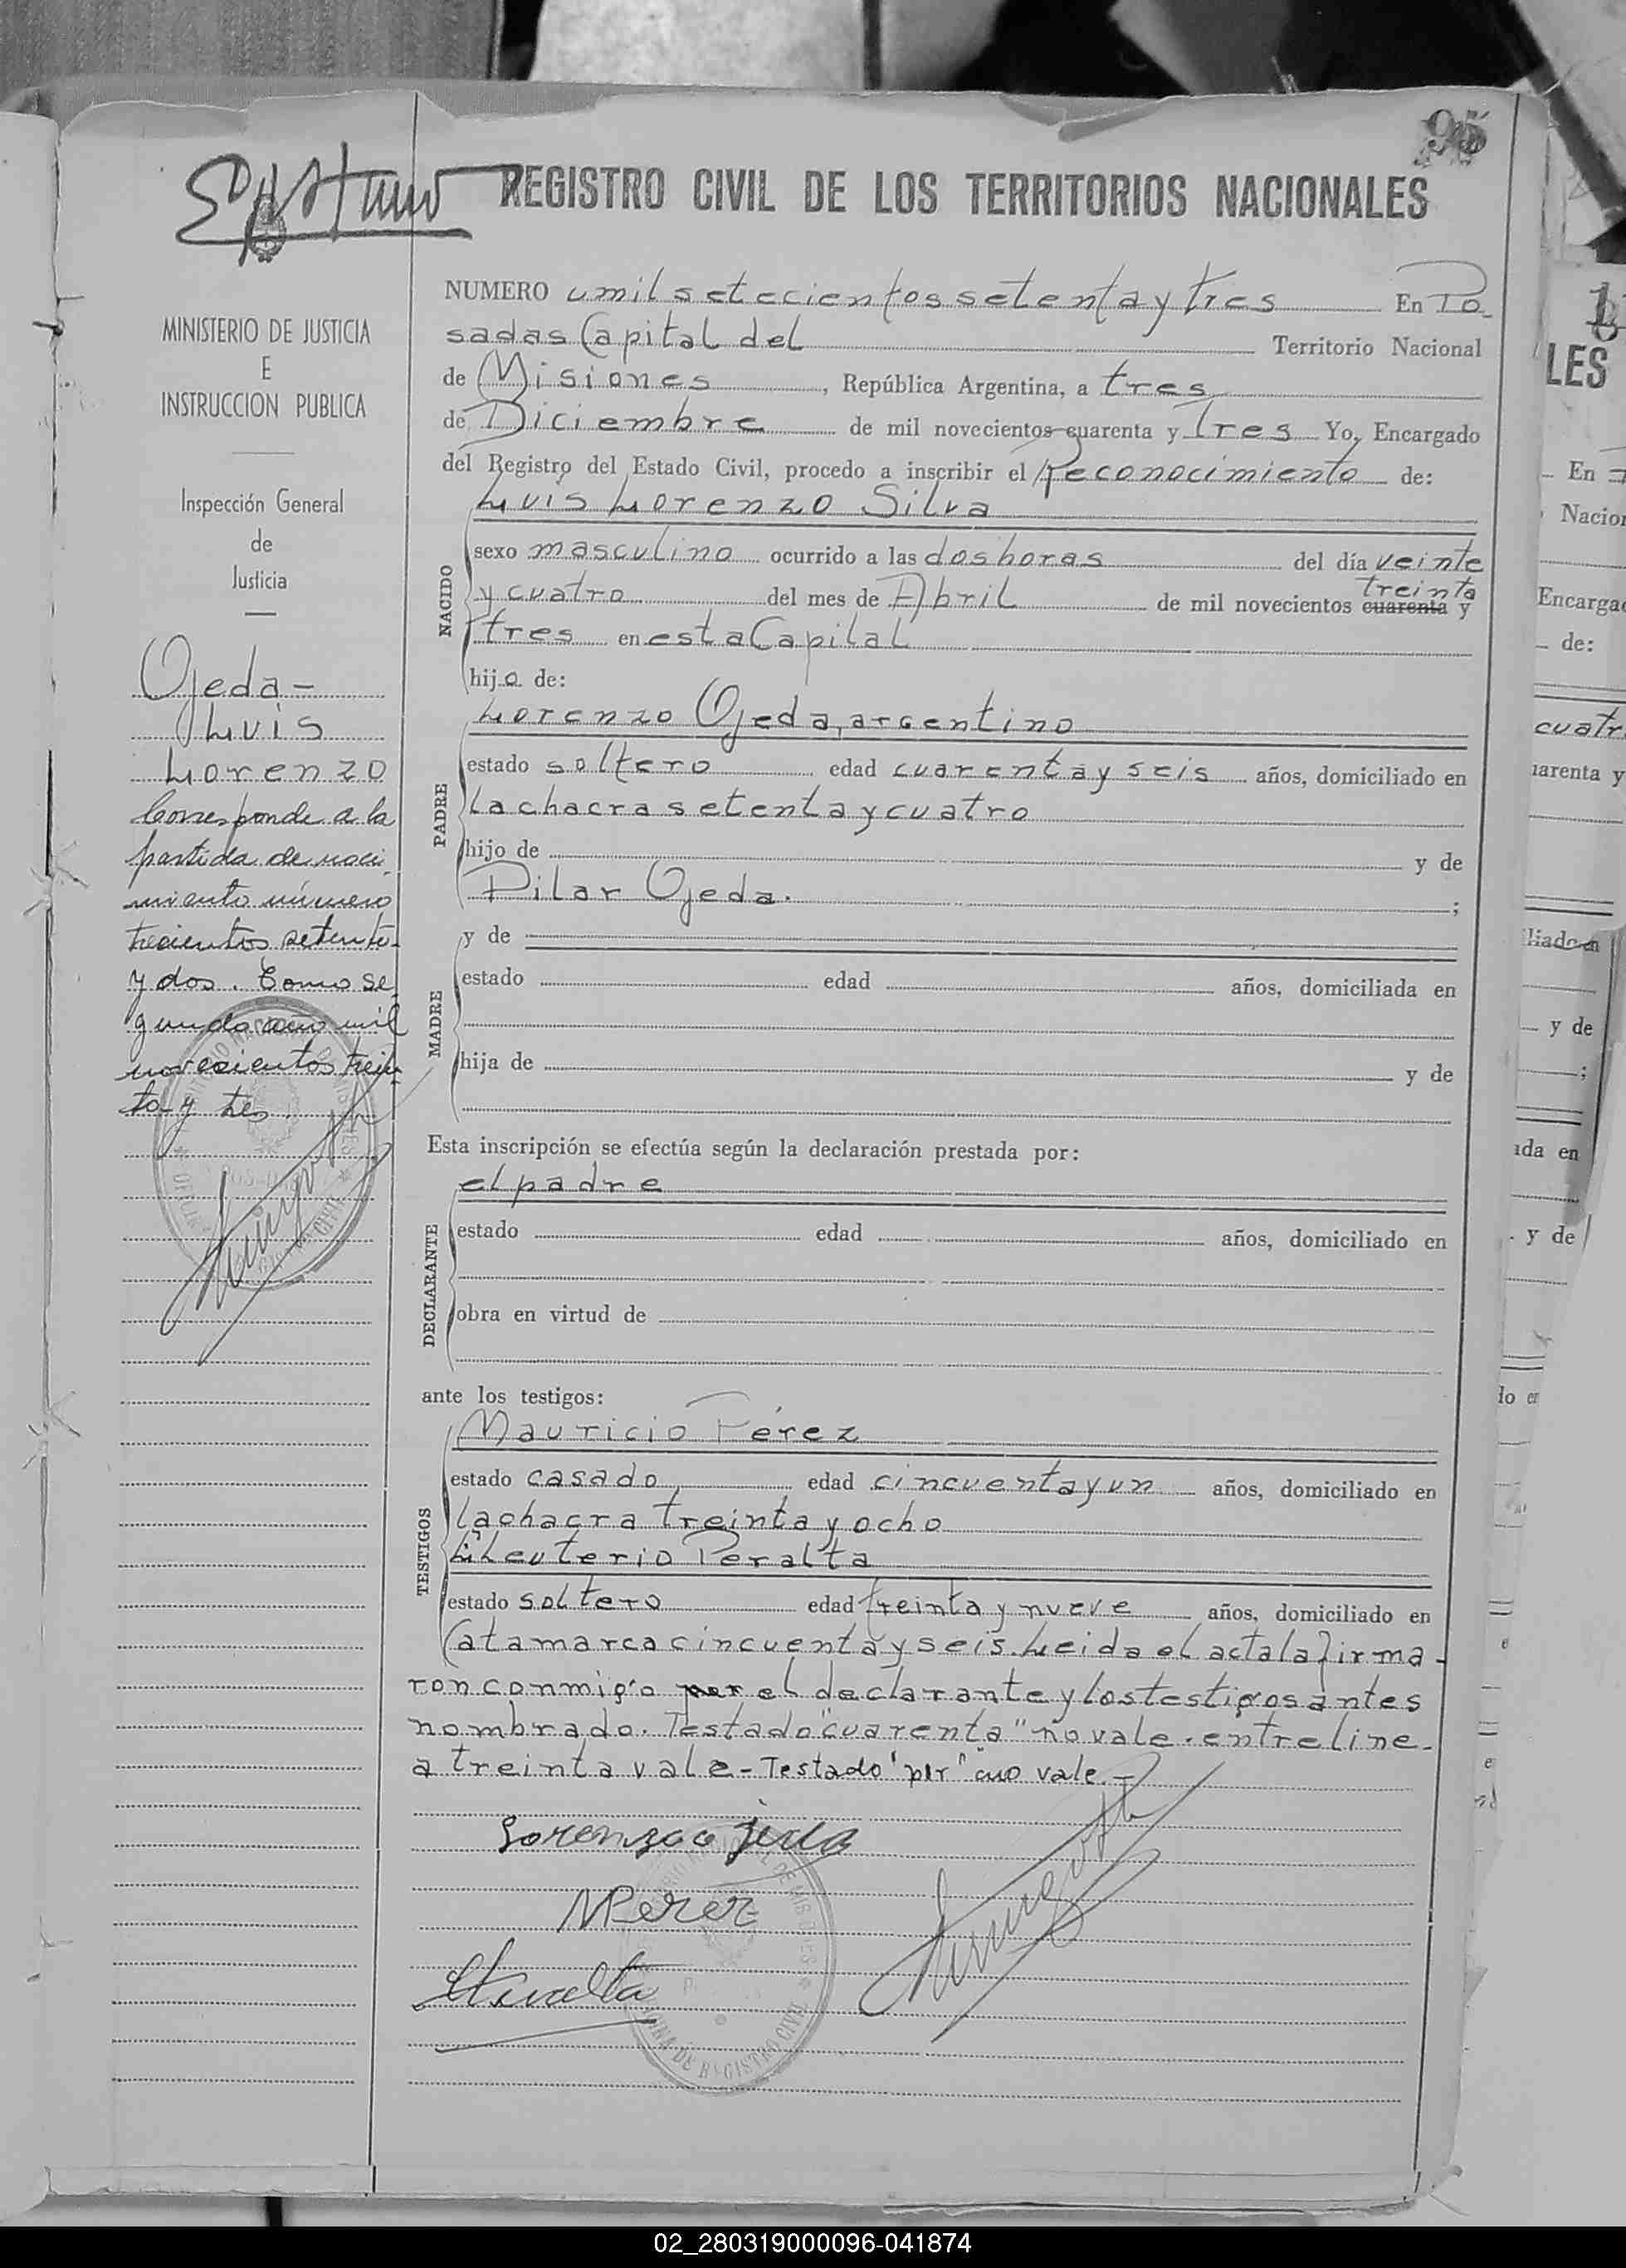 95
REGISTRO CIVIL DE LOS TERRITORIOS NACIONALES
MINISTERIO DE JUSTICIA
E
INSTRUCCION PUBLICA
Inspección General
de
Justicia
Ojeda-
Luis
Lorenzo
Corresponde a la
partida de naci
miento número
trecientos setenta
y dos. Tomo se
gundo año mil
novecientos trein
ta y tres.
NUMERO un mil setecientos setenta y tres En Po
sadas Capital del Territorio Nacional
de Misiones, República Argentina, a tres
de Diciembre de mil novecientos cuarenta y tres Yo, Encargado
del Registro del Estado Civil, procedo a inscribir el Reconocimiento de:
Luis Lorenzo Silva
NACIDO
sexo masculino ocurrido a las dos horas del día veinte
treinta
y cuatro del mes de Abril de mil novecientos cuarenta y
tres en esta Capital
hijo de:
PADRE
Lorenzo Ojeda, argentino
estado soltero edad cuarenta y seis años, domiciliado en
la chacra setenta y cuatro
hijo de y de
Pilar Ojeda. ;
MADRE
y de
estado edad años, domiciliada en
hija de y de
Esta inscripción se efectúa según la declaración prestada por:
el padre
DECLARANTE
estado edad años, domiciliado en
obra en virtud de
ante los testigos:
TESTIGOS
Mauricio Pérez
estado casado edad cincuenta y un años, domiciliado en
la chacra treinta y ocho
Eleuterio Peralta
estado soltero edad treinta y nueve años, domiciliado en
Catamarca cincuenta y seis. Leida el acta la firma-
ron conmigo por el declarante y los testigos antes
nombrado. Testado "cuarenta" no vale. entreline-
a treinta vale - Testado "por" no vale.-
Lorenzo Ojeda
MPerez
EPeralta
LES
En
Nacion
Encargad
de:
cuatr
uarenta y
iliado en
y de
;
ada en
y de
do en
02_280319000096-041874